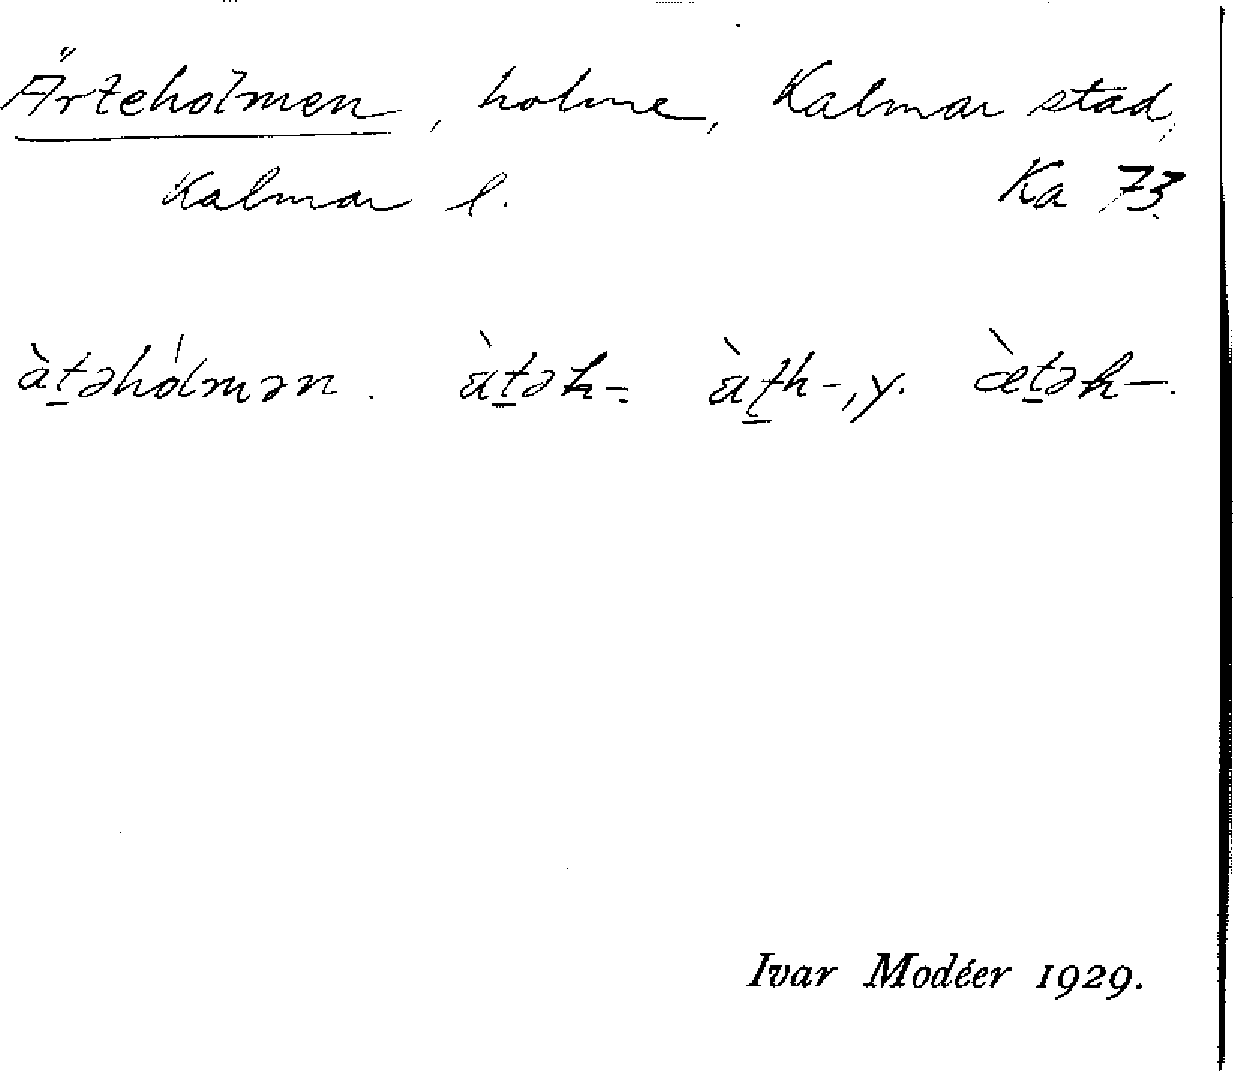 Ärteholmen, holme, Kalmar stad,
Kalmar l. Ka 73.
àt̠əhólmən. ä̀t̠əh-. ä̀t̠h-, y. æ̀t̠əh-.
Ivar Modéer 1929.